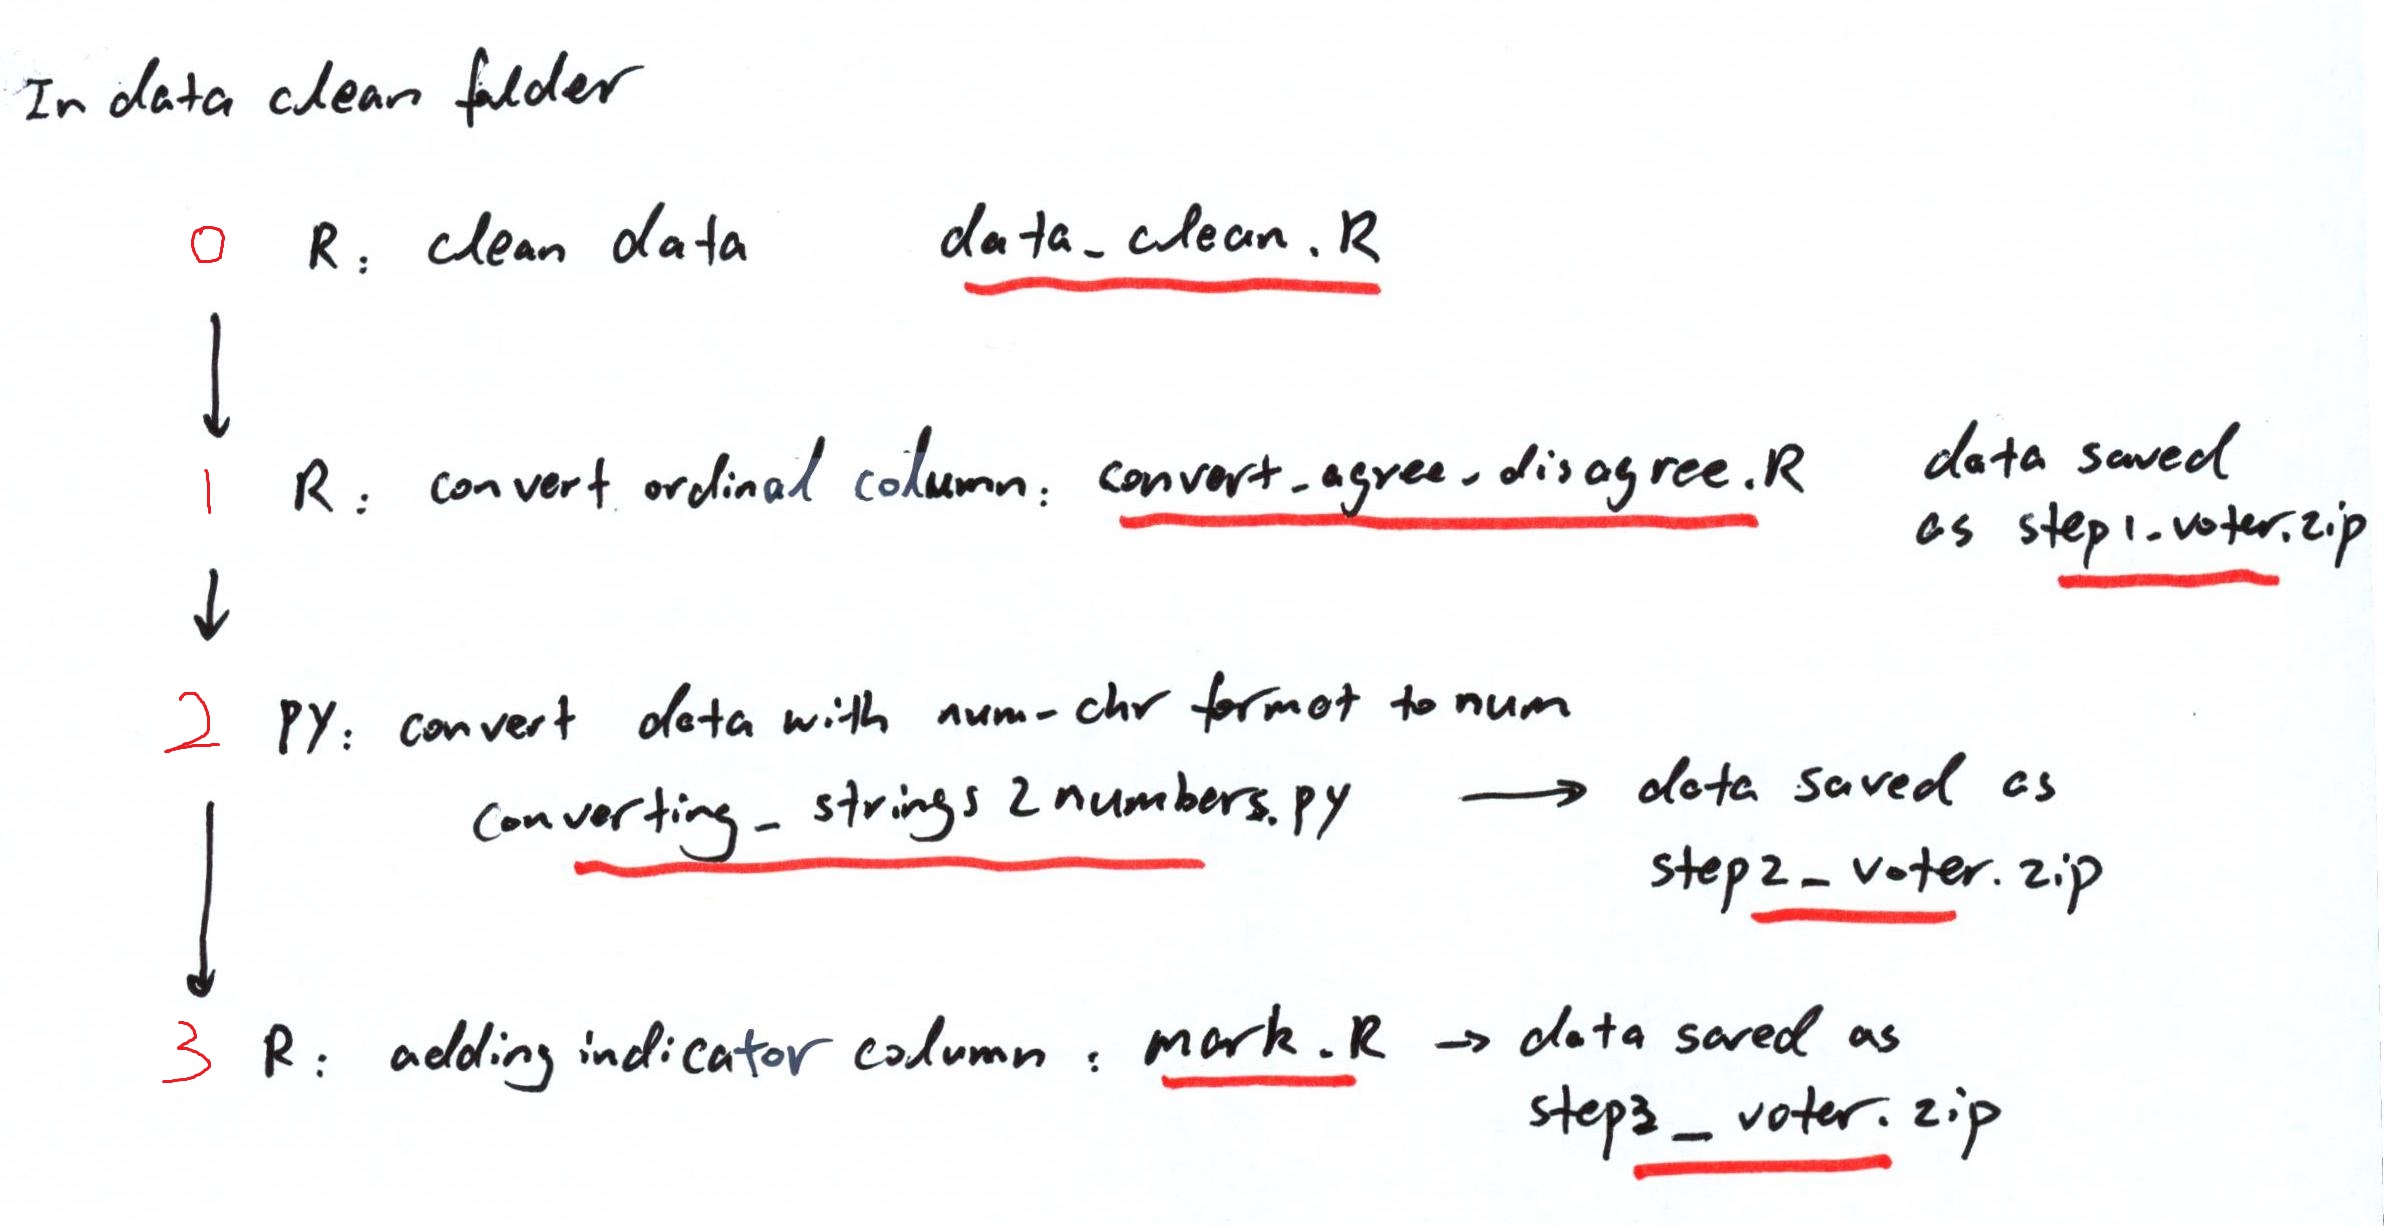 In data clean folder
0 R: clean data data_clean.R
↓
1 R: convert ordinal column: convert_agree_disagree.R data saved
as step1_voter.zip
↓
2 PY: convert data with num-chr format to num
converting_strings2numbers.py → data saved as
step2_voter.zip
↓
3 R: adding indicator column: mark.R → data saved as
step3_voter.zip